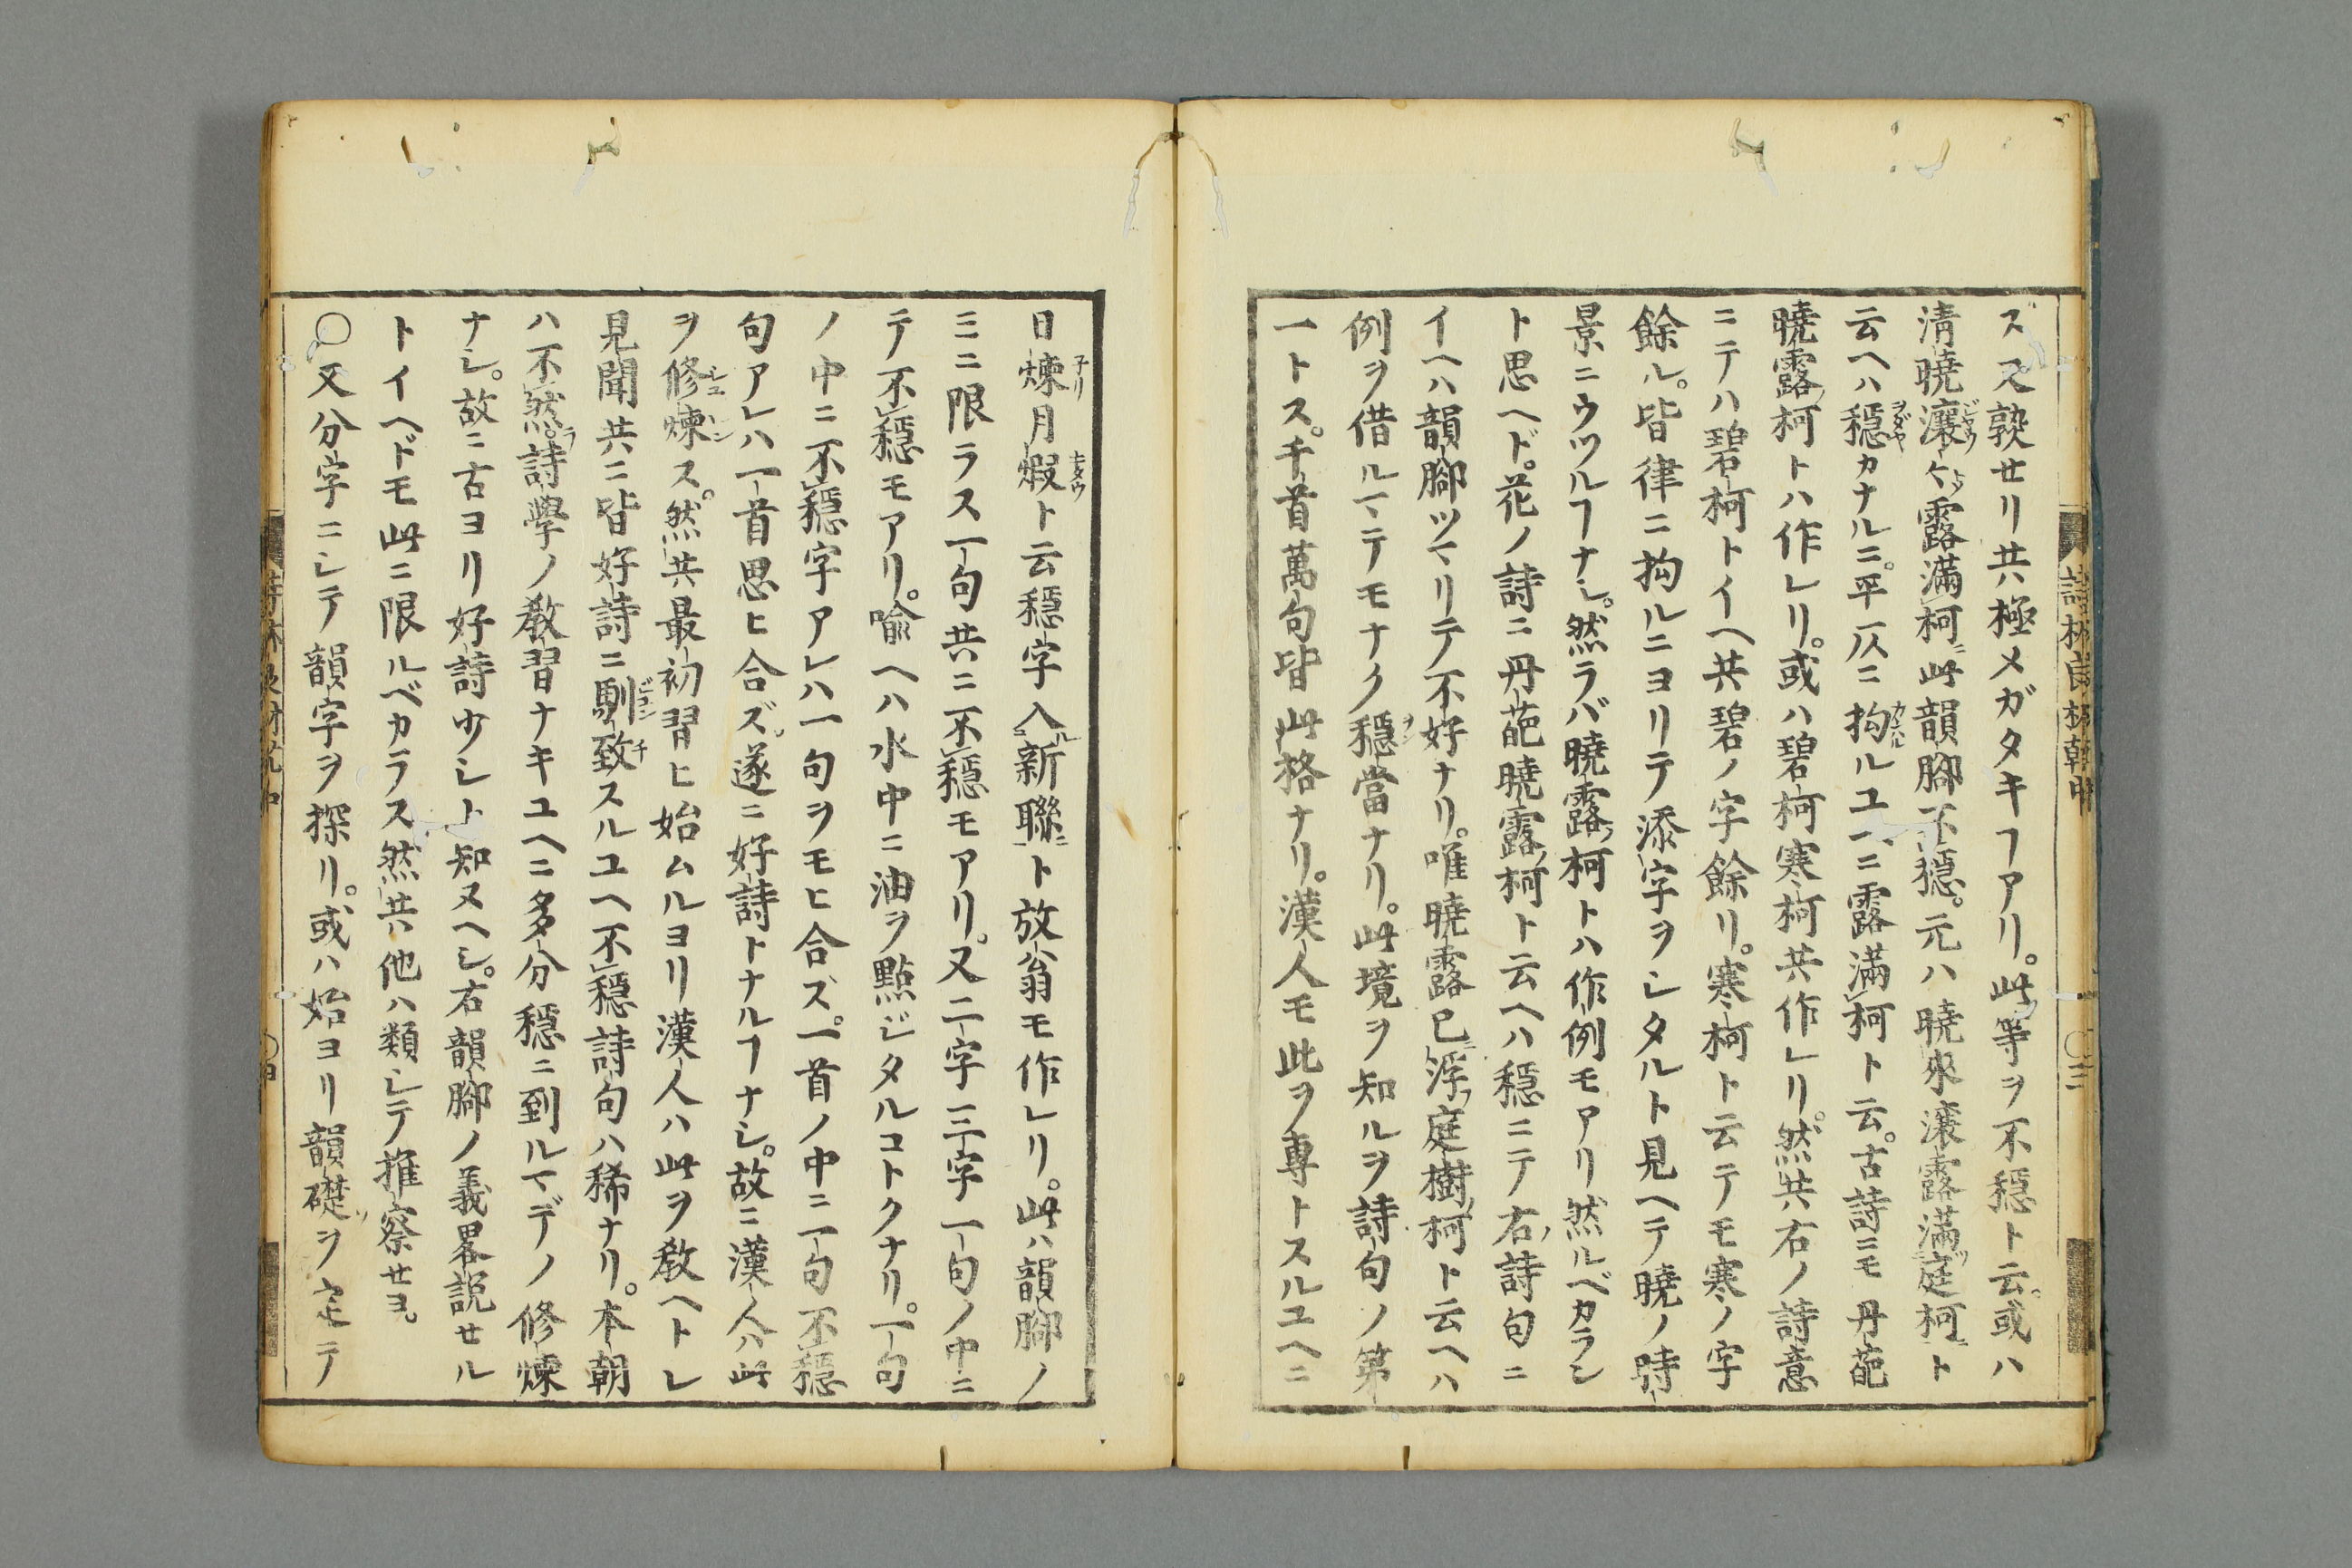 ズ又孰セリ共極メガタキヿアリ。此等ヲ不穏ト云。或ハ
淸曉瀼々露滿柯此韻脚不穏。元ハ曉來瀼露滿庭柯ト
云ヘハ穏カナルニ。平仄ニ拘ルユヘニ露滿柯ト云。古詩ニモ丹葩
曉露柯トハ作レリ。或ハ碧柯寒柯共作レリ。然共右ノ詩意
ニテハ碧柯トイヘ共碧ノ字餘リ。寒柯ト云テモ寒ノ字
餘ル。皆律ニ拘ルニヨリテ添字ヲシタルト見ヘテ曉ノ時
景ニウツルヿナシ。然ラバ曉露柯トハ作例モアリ然ルベカラン
ト思ヘド。花ノ詩ニ丹葩曉露柯ト云ヘハ穏ニテ右詩句ニ
イヘハ韻脚ツマリテ不好ナリ。唯曉露已浮庭樹柯ト云ヘハ
例ヲ借ルマテモナク穏當ナリ。此境ヲ知ルヲ詩句ノ第
一トス。千首萬句皆此格ナリ。漢人モ此ヲ専トスルユヘニ
日煉月煆ト云穏字入新聯ト放翁モ作レリ。此ハ韻脚ノ
ミニ限ラス一句共ニ不穏モアリ。又二字三字一句ノ中ニ
テ不穏モアリ。喩ヘハ水中ニ油ヲ點ジタルコトクナリ。一句
ノ中ニ不穏字アレハ一句ヲモヒ合ズ。一首ノ中ニ一句不穏
句アレハ一首思ヒ合ズ。遂ニ好詩トナルヿナシ。故ニ漢人ハ此
ヲ修煉ス。然共最初習ヒ始ムルヨリ漢人ハ此ヲ教ヘトシ
見聞共ニ皆好詩ニ馴致スルユヘ不穏詩句ハ稀ナリ。本朝
ハ不然。詩學ノ教習ナキユヘニ多分穏ニ到ルマデノ修煉
ナシ。故ニ古ヨリ好詩少シト知ヌヘシ。右韻脚ノ義畧説セル
トイヘドモ此ニ限ルベカラス然共他ハ類シテ推察セヨ。
○又分字ニシテ韻字ヲ探リ。或ハ始ヨリ韻礎ヲ定テ